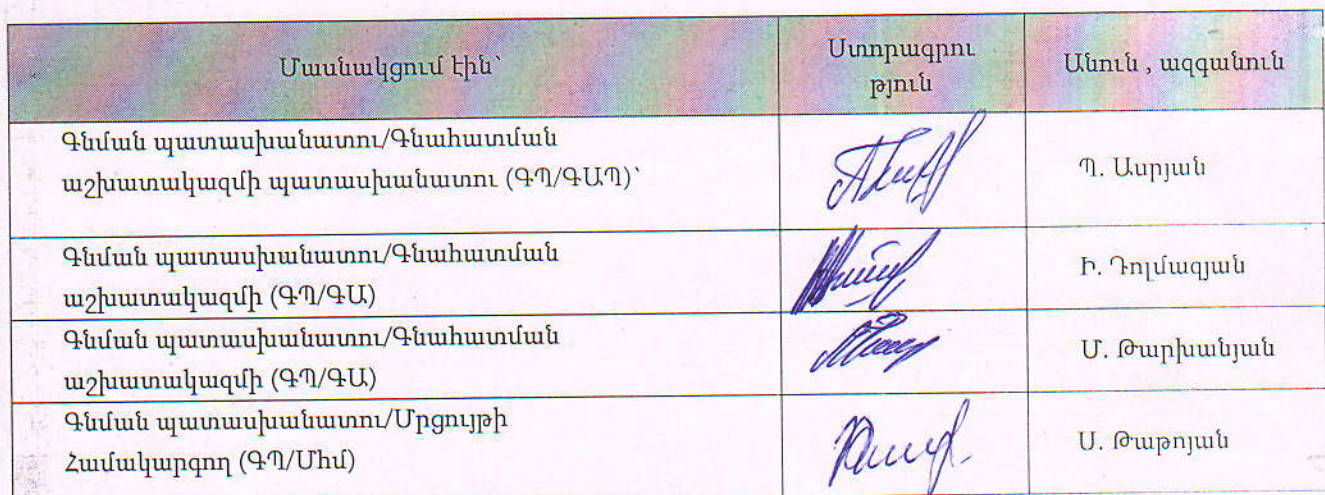 Մասնակցում էին`
Ստորագրու
թյուն
Անուն , ազգանուն
Գնման պատասխանատու/Գնահատման
աշխատակազմի պատասխանատու (ԳՊ/ԳԱՊ)`
Պ. Ասրյան
Գնման պատասխանատու/Գնահատման
աշխատակազմի (ԳՊ/ԳԱ)
Ի. Դոլմազյան
Գնման պատասխանատու/Գնահատման
աշխատակազմի (ԳՊ/ԳԱ)
Մ. Թարխանյան
Գնման պատասխանատու/Մրցույթի
Համակարգող (ԳՊ/Մհմ)
Ս. Թաթոյան